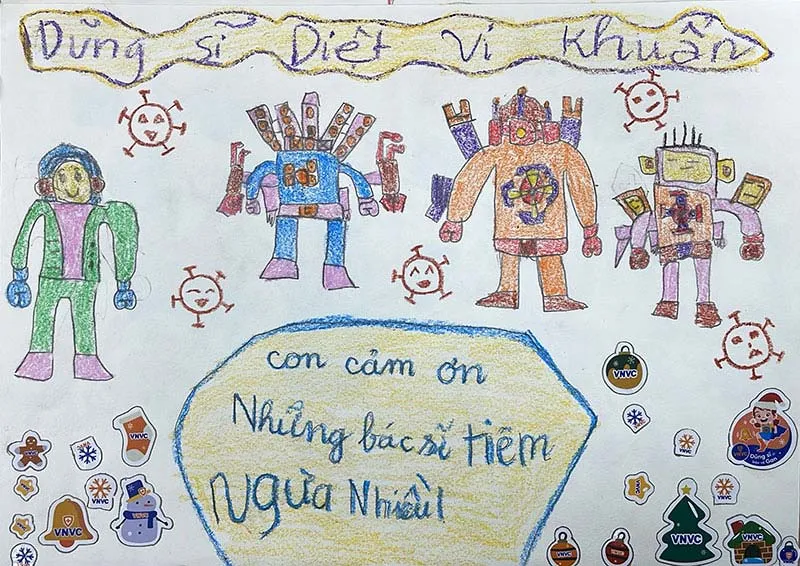 Dũng sĩ Diệt Vi Khuẩn
con cảm ơn
Những bác sĩ tiêm
Ngừa Nhiều!
VNVC
VNVC
VNVC
VNVC
VNVC
VNVC
VNVC
VNVC
VNVC
Dũng sĩ